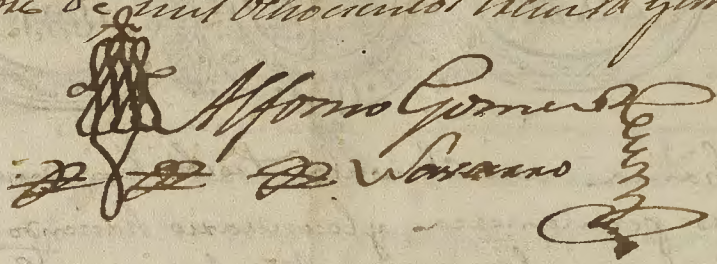 de mil Ochocientos treinta y
Alfonso Gomes
Navarro